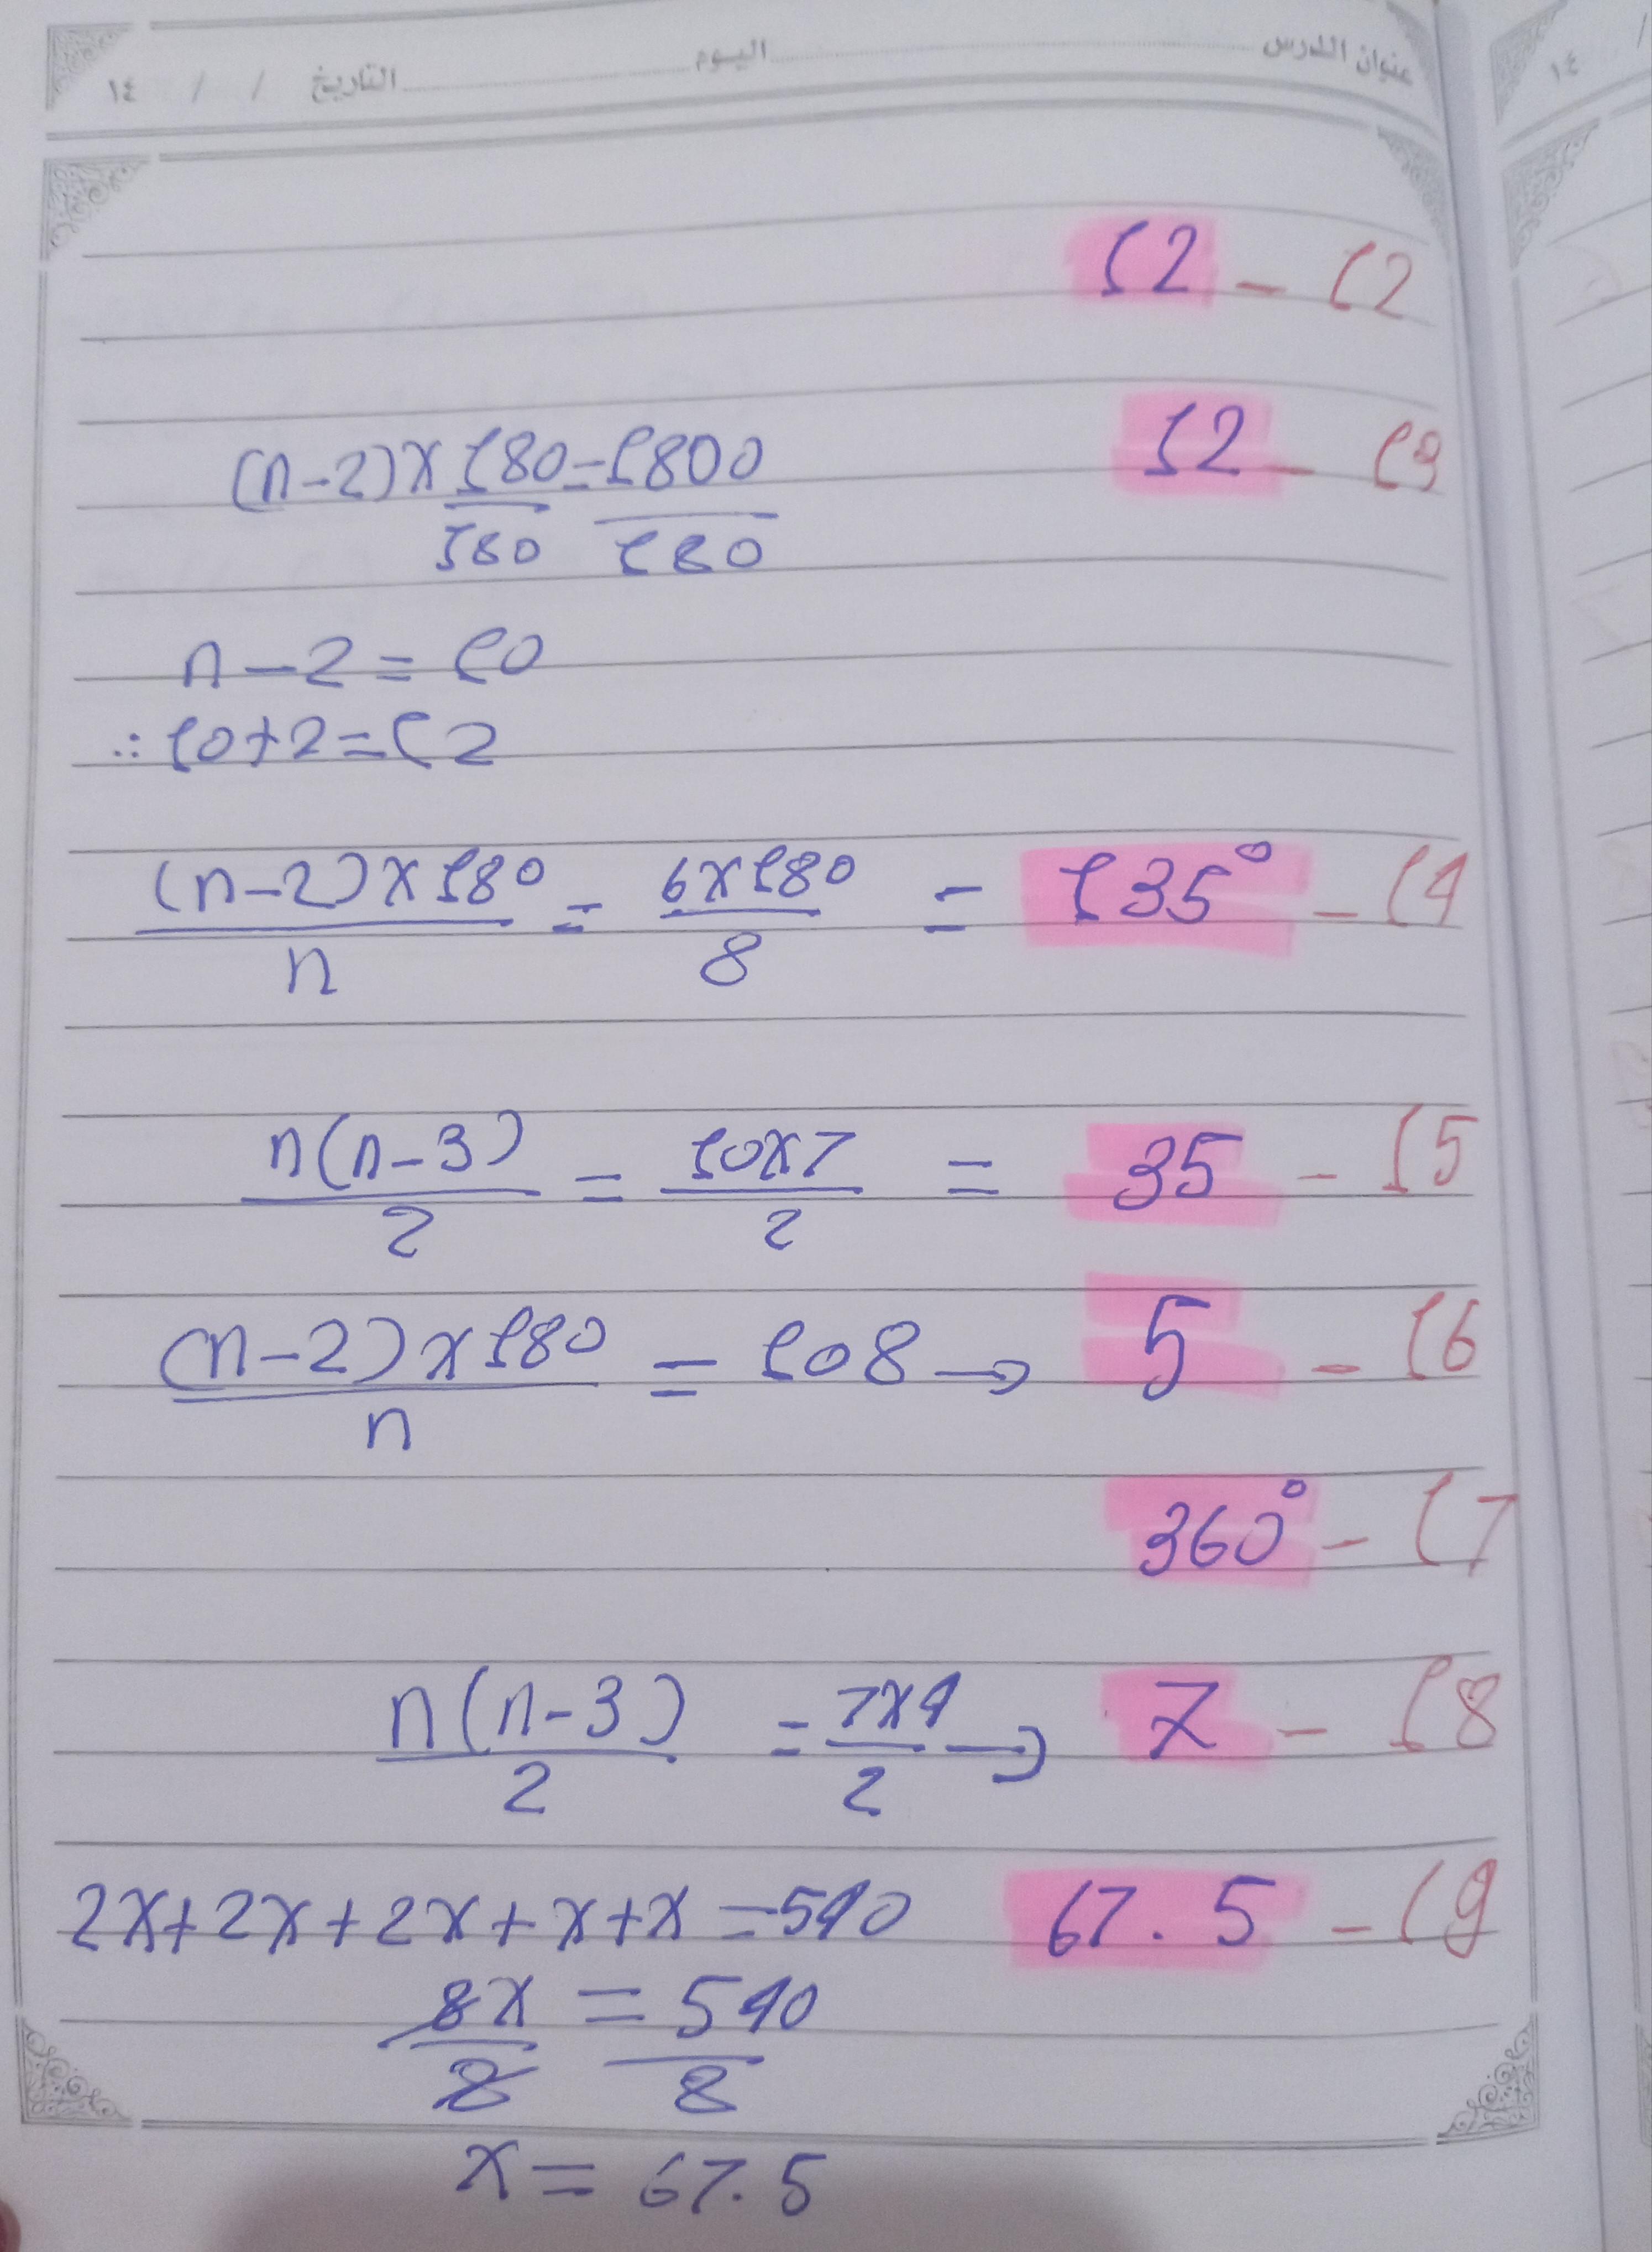 عنوان الدرس اليوم التاريخ / / ١٤
12 - 12
12 - 13
(n-2)×180/180=1800/180
n-2=10
∴ 10+2=12
(n-2)×180/n = 6×180/8 = 135° - 14
n(n-3)/2 = 10×7/2 = 35 - 15
(n-2)×180/n = 108 → 5 - 16
360° - 17
n(n-3)/2 = 7×4/2 → 7 - 18
2x+2x+2x+x+x=540 67.5 - 19
8x/8 = 540/8
x = 67.5